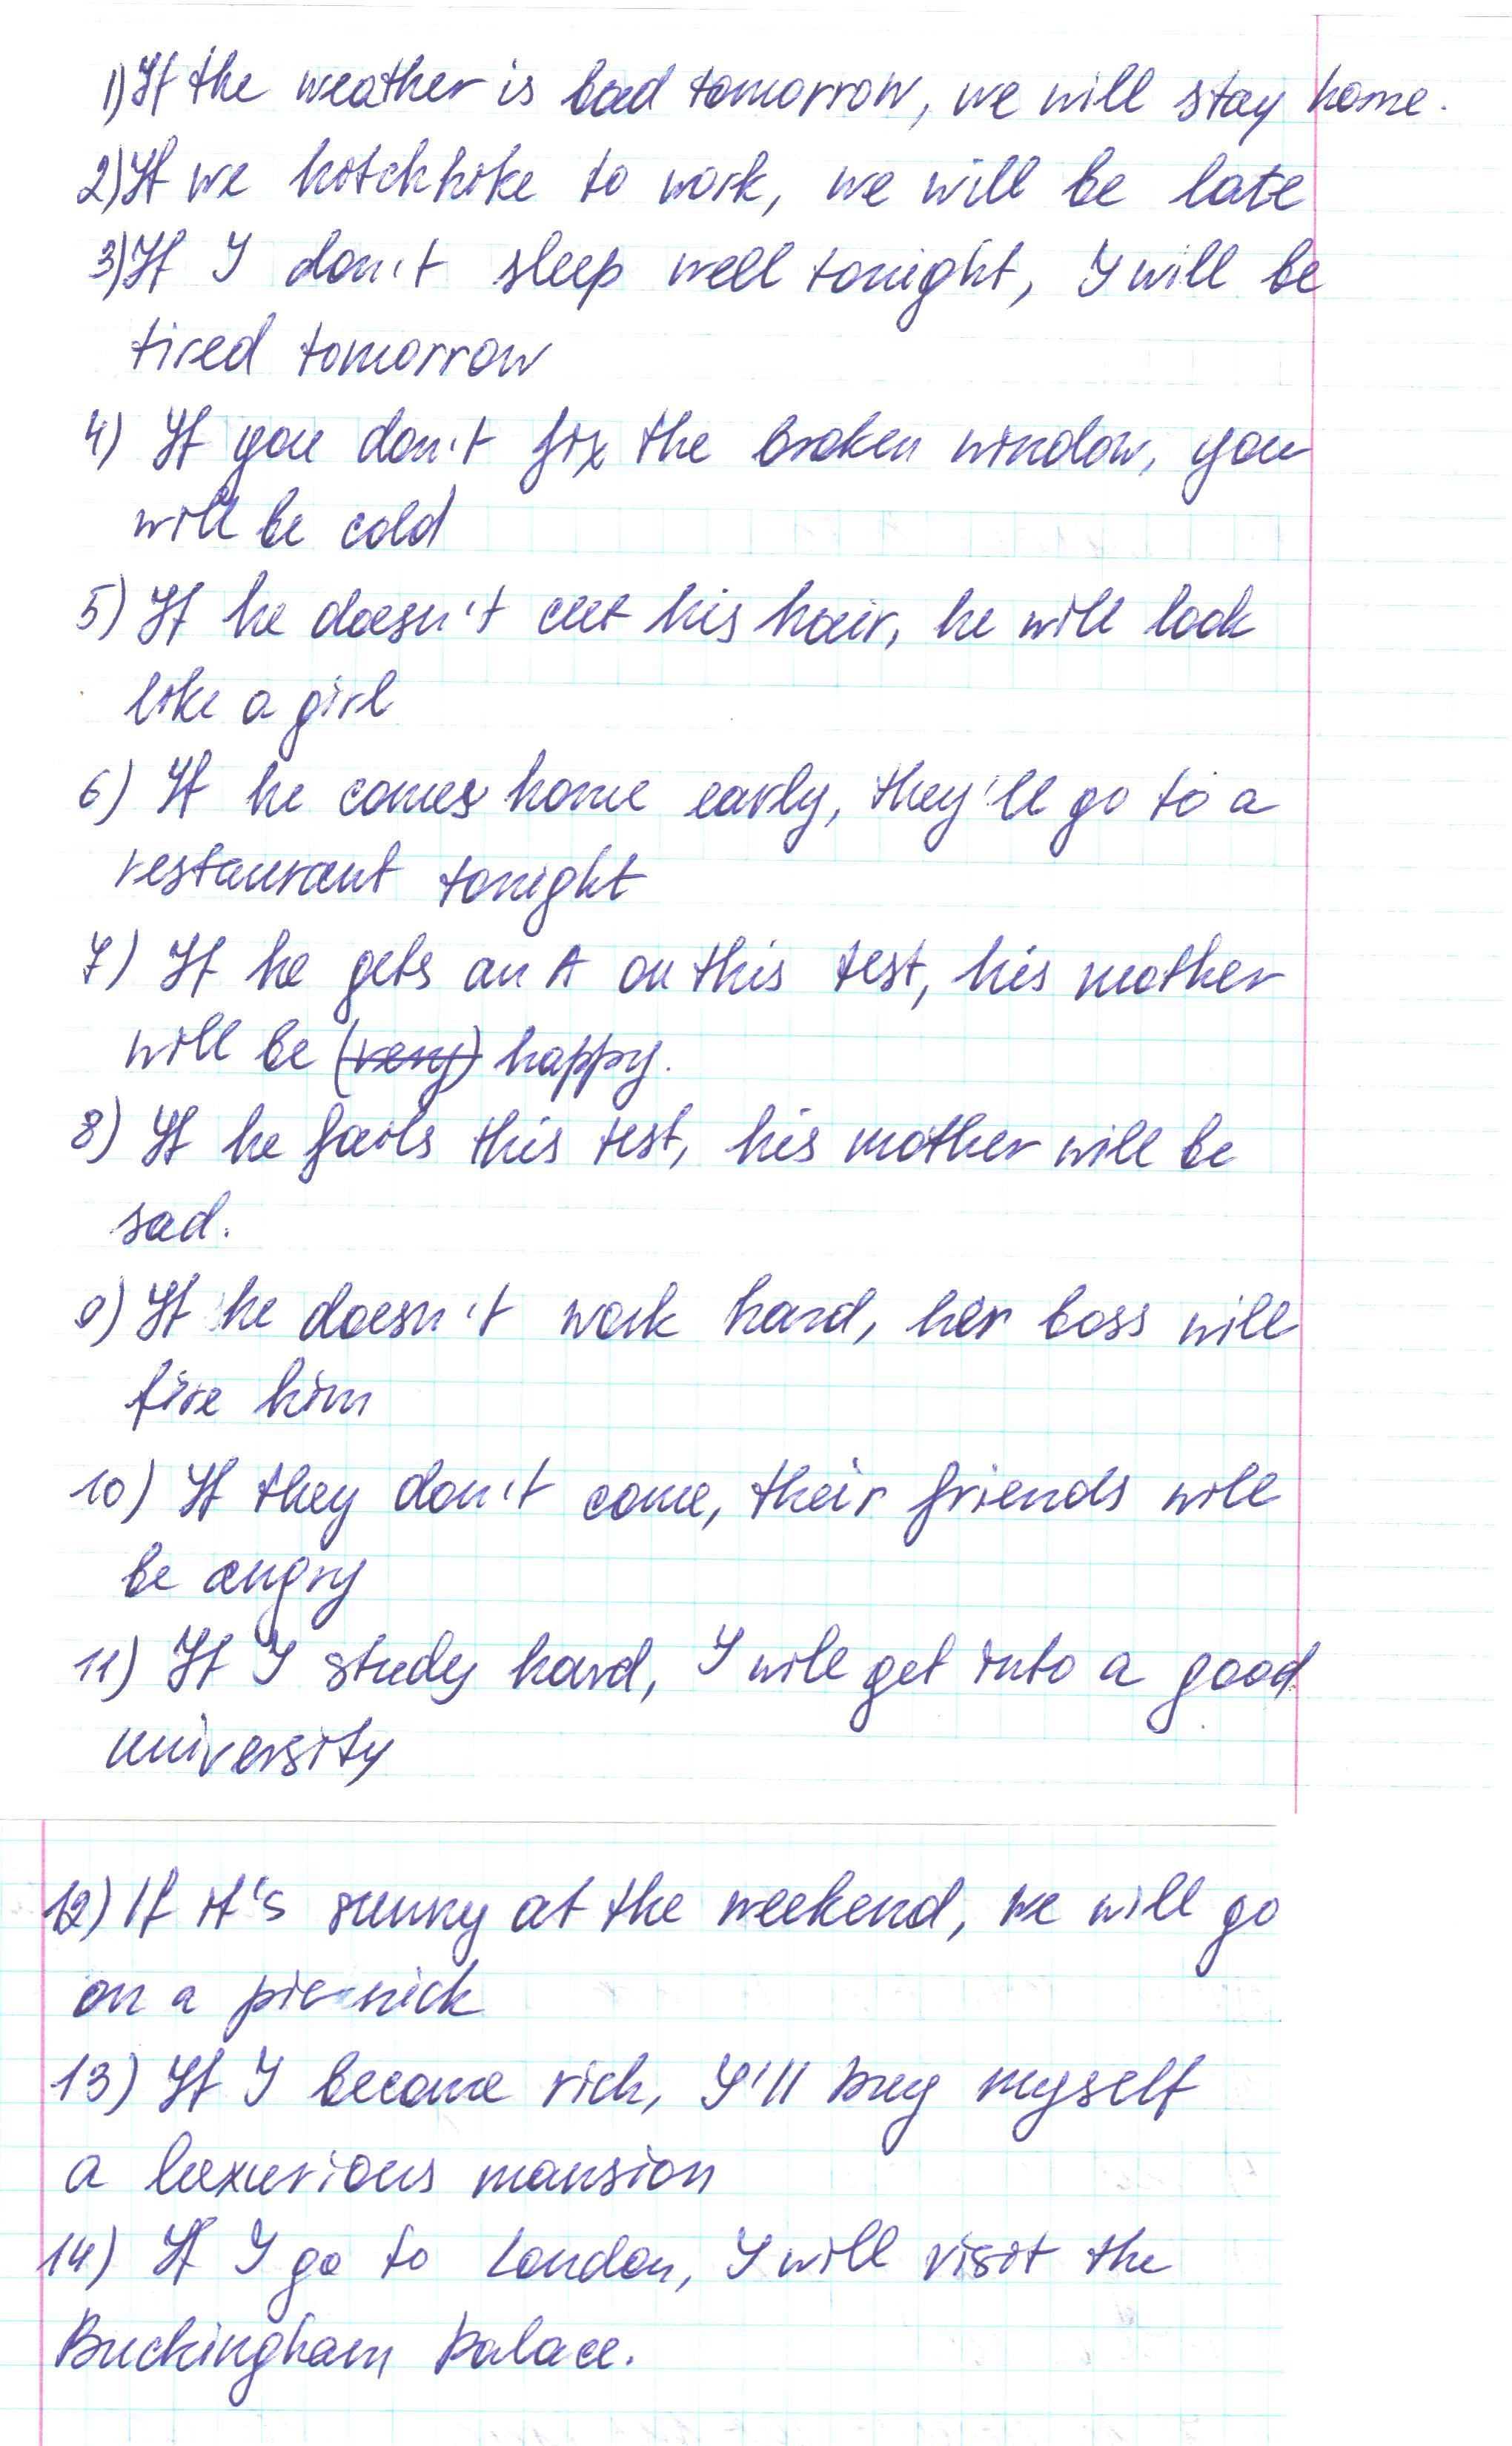 1) If the weather is bad tomorrow, we will stay home.
2) If we hitchhike to work, we will be late
3) If I don't sleep well tonight, I will be
tired tomorrow
4) If you don't fix the broken window, you
will be cold
5) If he doesn't cut his hair, he will look
like a girl
6) If he comes home early, they'll go to a
restaurant tonight
7) If he gets an A on this test, his mother
will be (very) happy.
8) If he fails this test, his mother will be
sad.
9) If he doesn't work hard, her boss will
fire him
10) If they don't come, their friends will
be angry
11) If I study hard, I will get into a good
university
12) If it's sunny at the weekend, we will go
on a picnick
13) If I become rich, I'll buy myself
a luxurious mansion
14) If I go to London, I will visit the
Buckingham Palace.